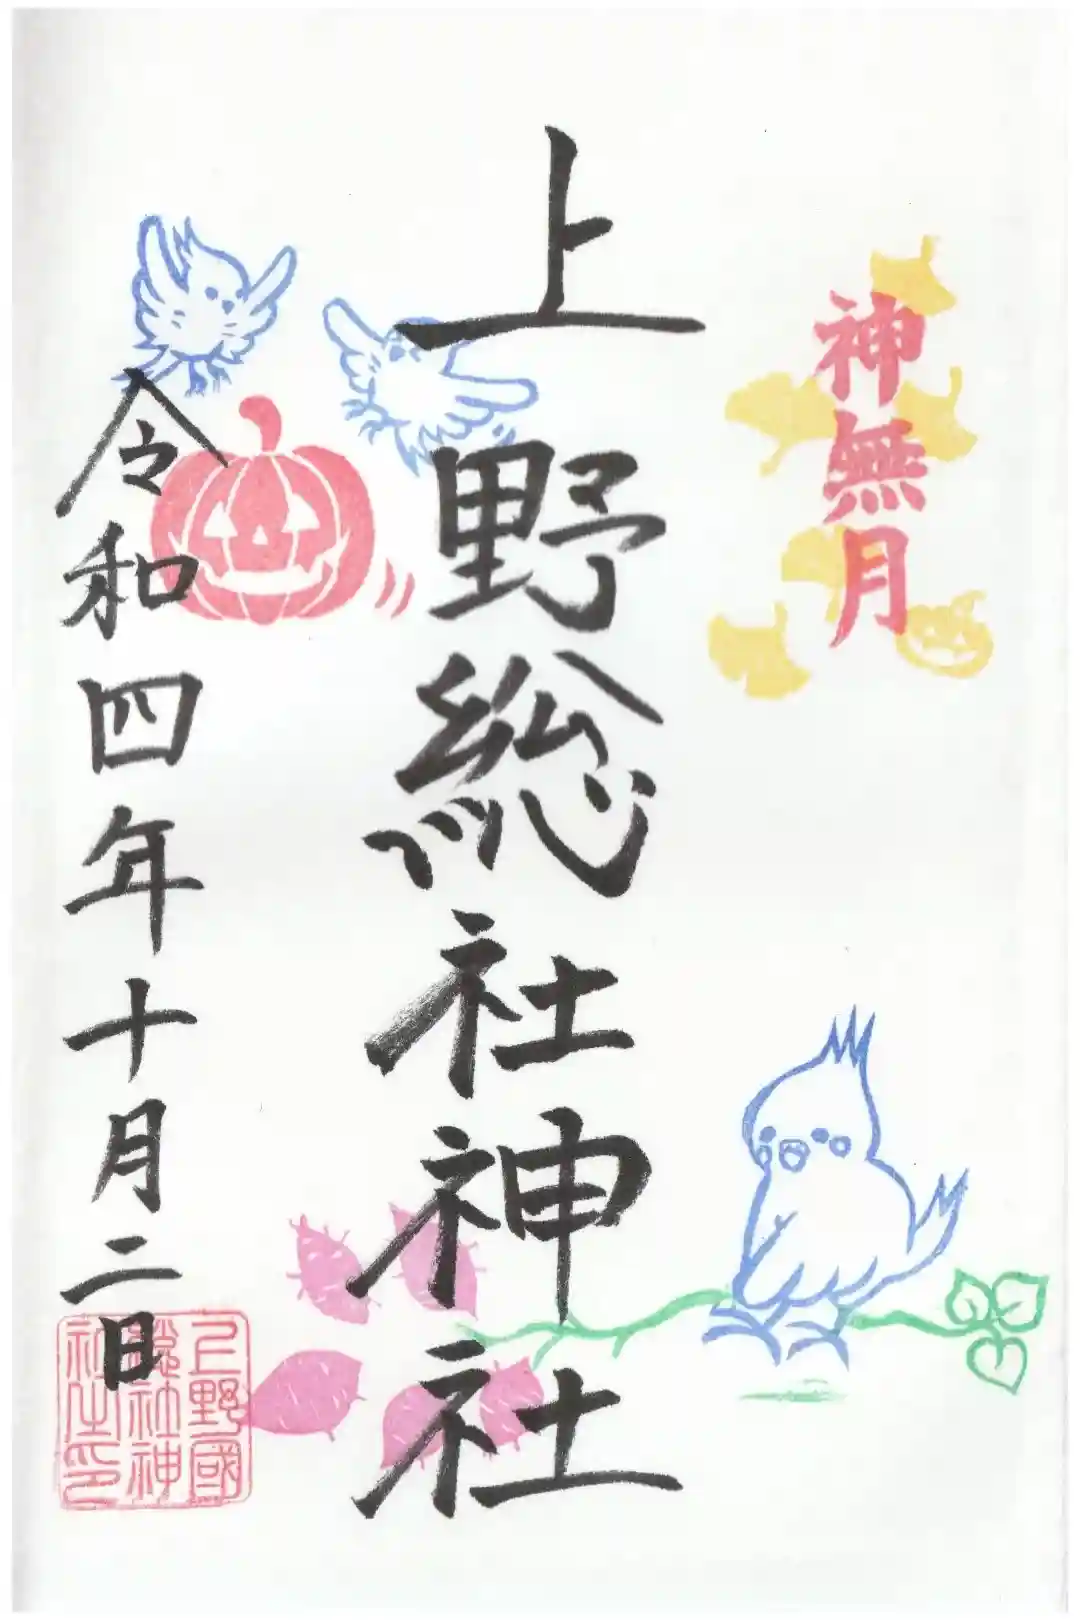 神無月
上野総社神社
令和四年十月二日
上野國
総社神
社之印